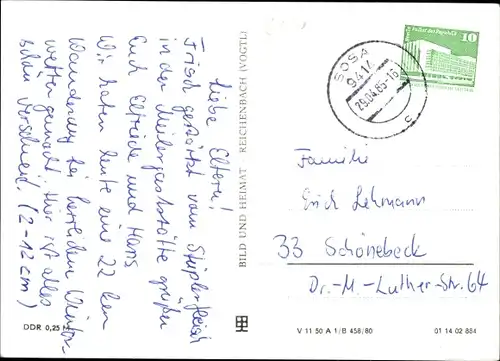 Liebe Eltern!
Frisch gestärkt vom
in der Meilergaststätte grüßen
Euch Elfriede und Hans
Wir haben heute eine 22 km
Wanderung bei herrlichem Winter-
wetter gemacht. Hier ist alles
schön verschneit. (2-12 cm)
BILD UND HEIMAT REICHENBACH (VOGTL)
DDR 0,25 M
10
SOSA
9414
29.04.85-16
c
Familie
Erich Lehmann
33 Schönebeck
Dr.-M.-Luther-Str. 64
V 11 50 A 1/B 458/80
01 14 02 884